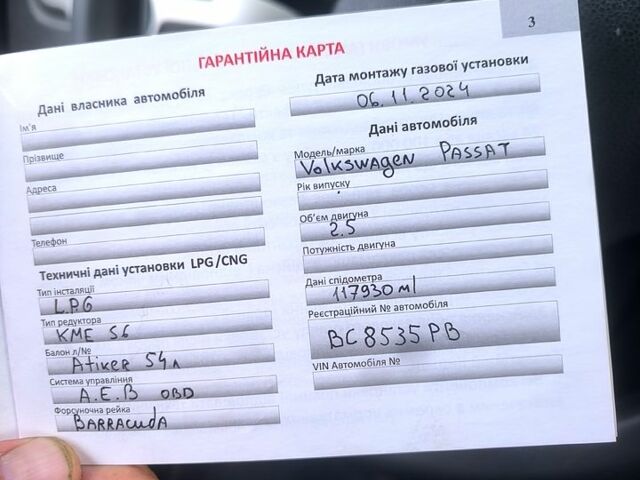 3
ГАРАНТІЙНА КАРТА
Дані власника автомобіля
Ім'я
Прізвище
Адреса
Телефон
Технічні дані установки LPG/CNG
Тип інсталяції
L.P.G
Тип редуктора
KME S6
Балон л/№
Atiker 54л
Система управління
A.E.B OBD
Форсуночна рейка
BARRACUDA
Дата монтажу газової установки
06.11.2024
Дані автомобіля
Модель/марка
Volkswagen PASSAT
Рік випуску
Об'єм двигуна
2.5
Потужність двигуна
Дані спідометра
117930 ml
Реєстраційний № автомобіля
BC8535PB
VIN Автомобіля №